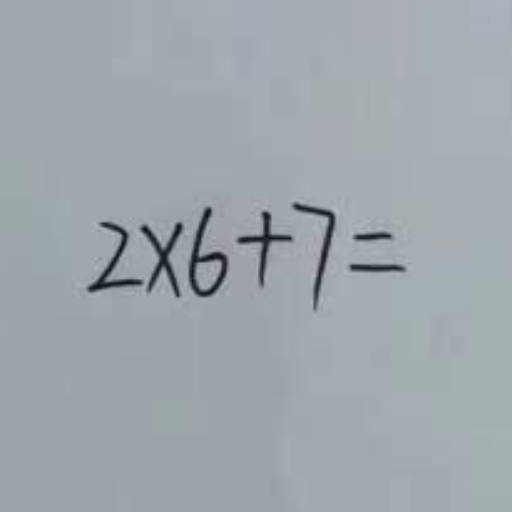 2×6+7=